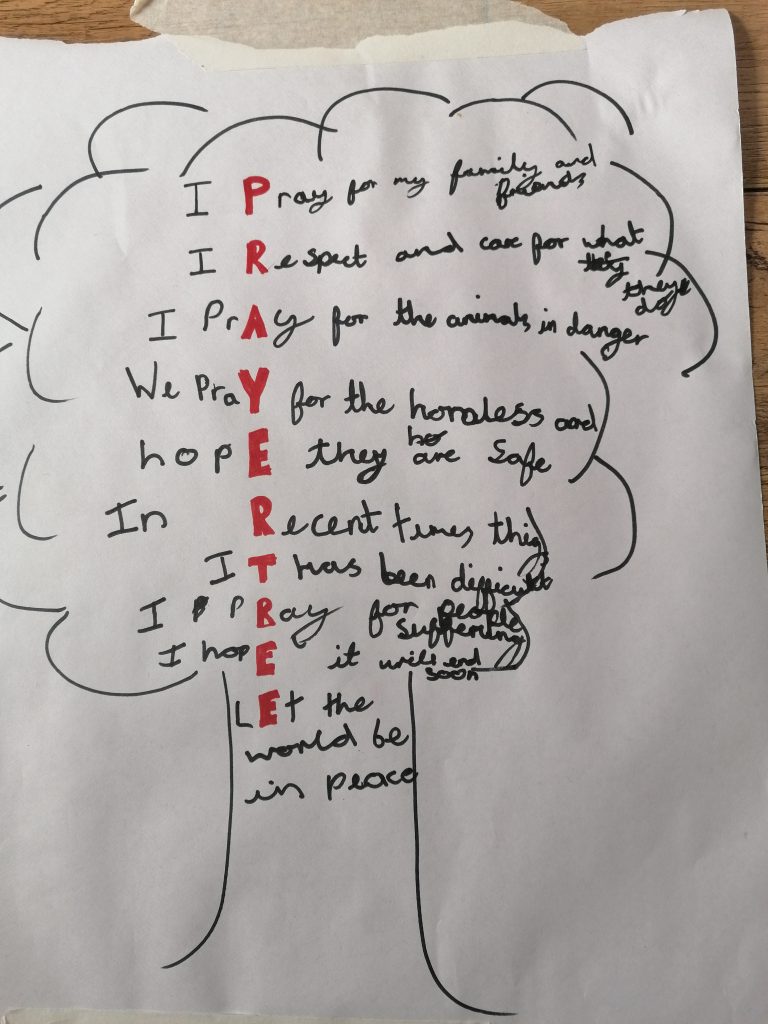 I Pray for my family and friends
I Respect and care for what they do
I PrAy for the animals in danger
We PraY for the homeless and
hopE they are Safe
In Recent times this
IT has been difficult
I PRay for people suffering
I hopE it will end soon
LEt the
world be
in peace